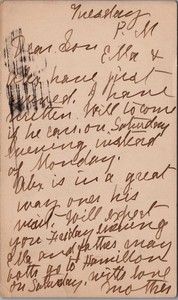 Tuesday
P. M
Dear Son
Ella &
have just
. I have
written Will to come
if he can, on Saturday
evening instead
of Monday.
Alex is in a great
way over his
visit. Will expect
you Friday evening
Ella and father may
both go to Hamilton
on Saturday, with love
mother